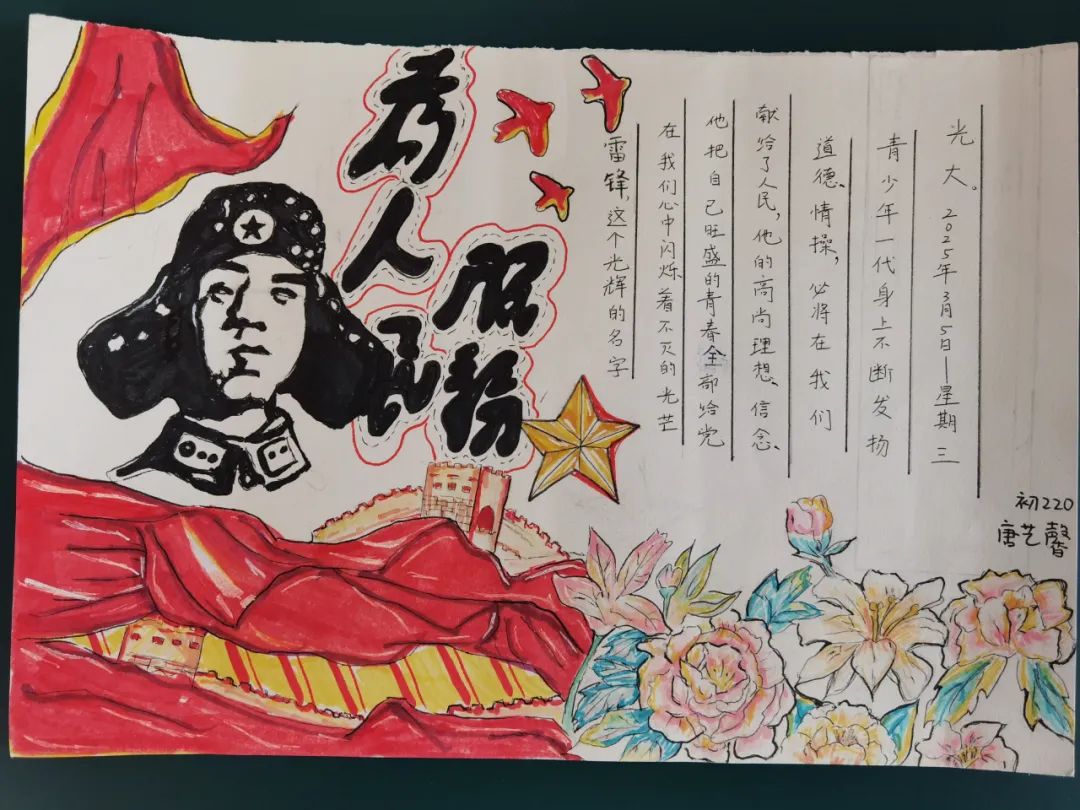 为人民
服务
雷锋,这个光辉的名字
在我们心中闪烁着不灭的光芒
他把自己旺盛的青春全部给党
献给了人民,他的高尚理想、信念、
道德、情操,必将在我们
青少年一代身上不断发扬
光大。2025年3月5日—星期三
初220
唐艺馨